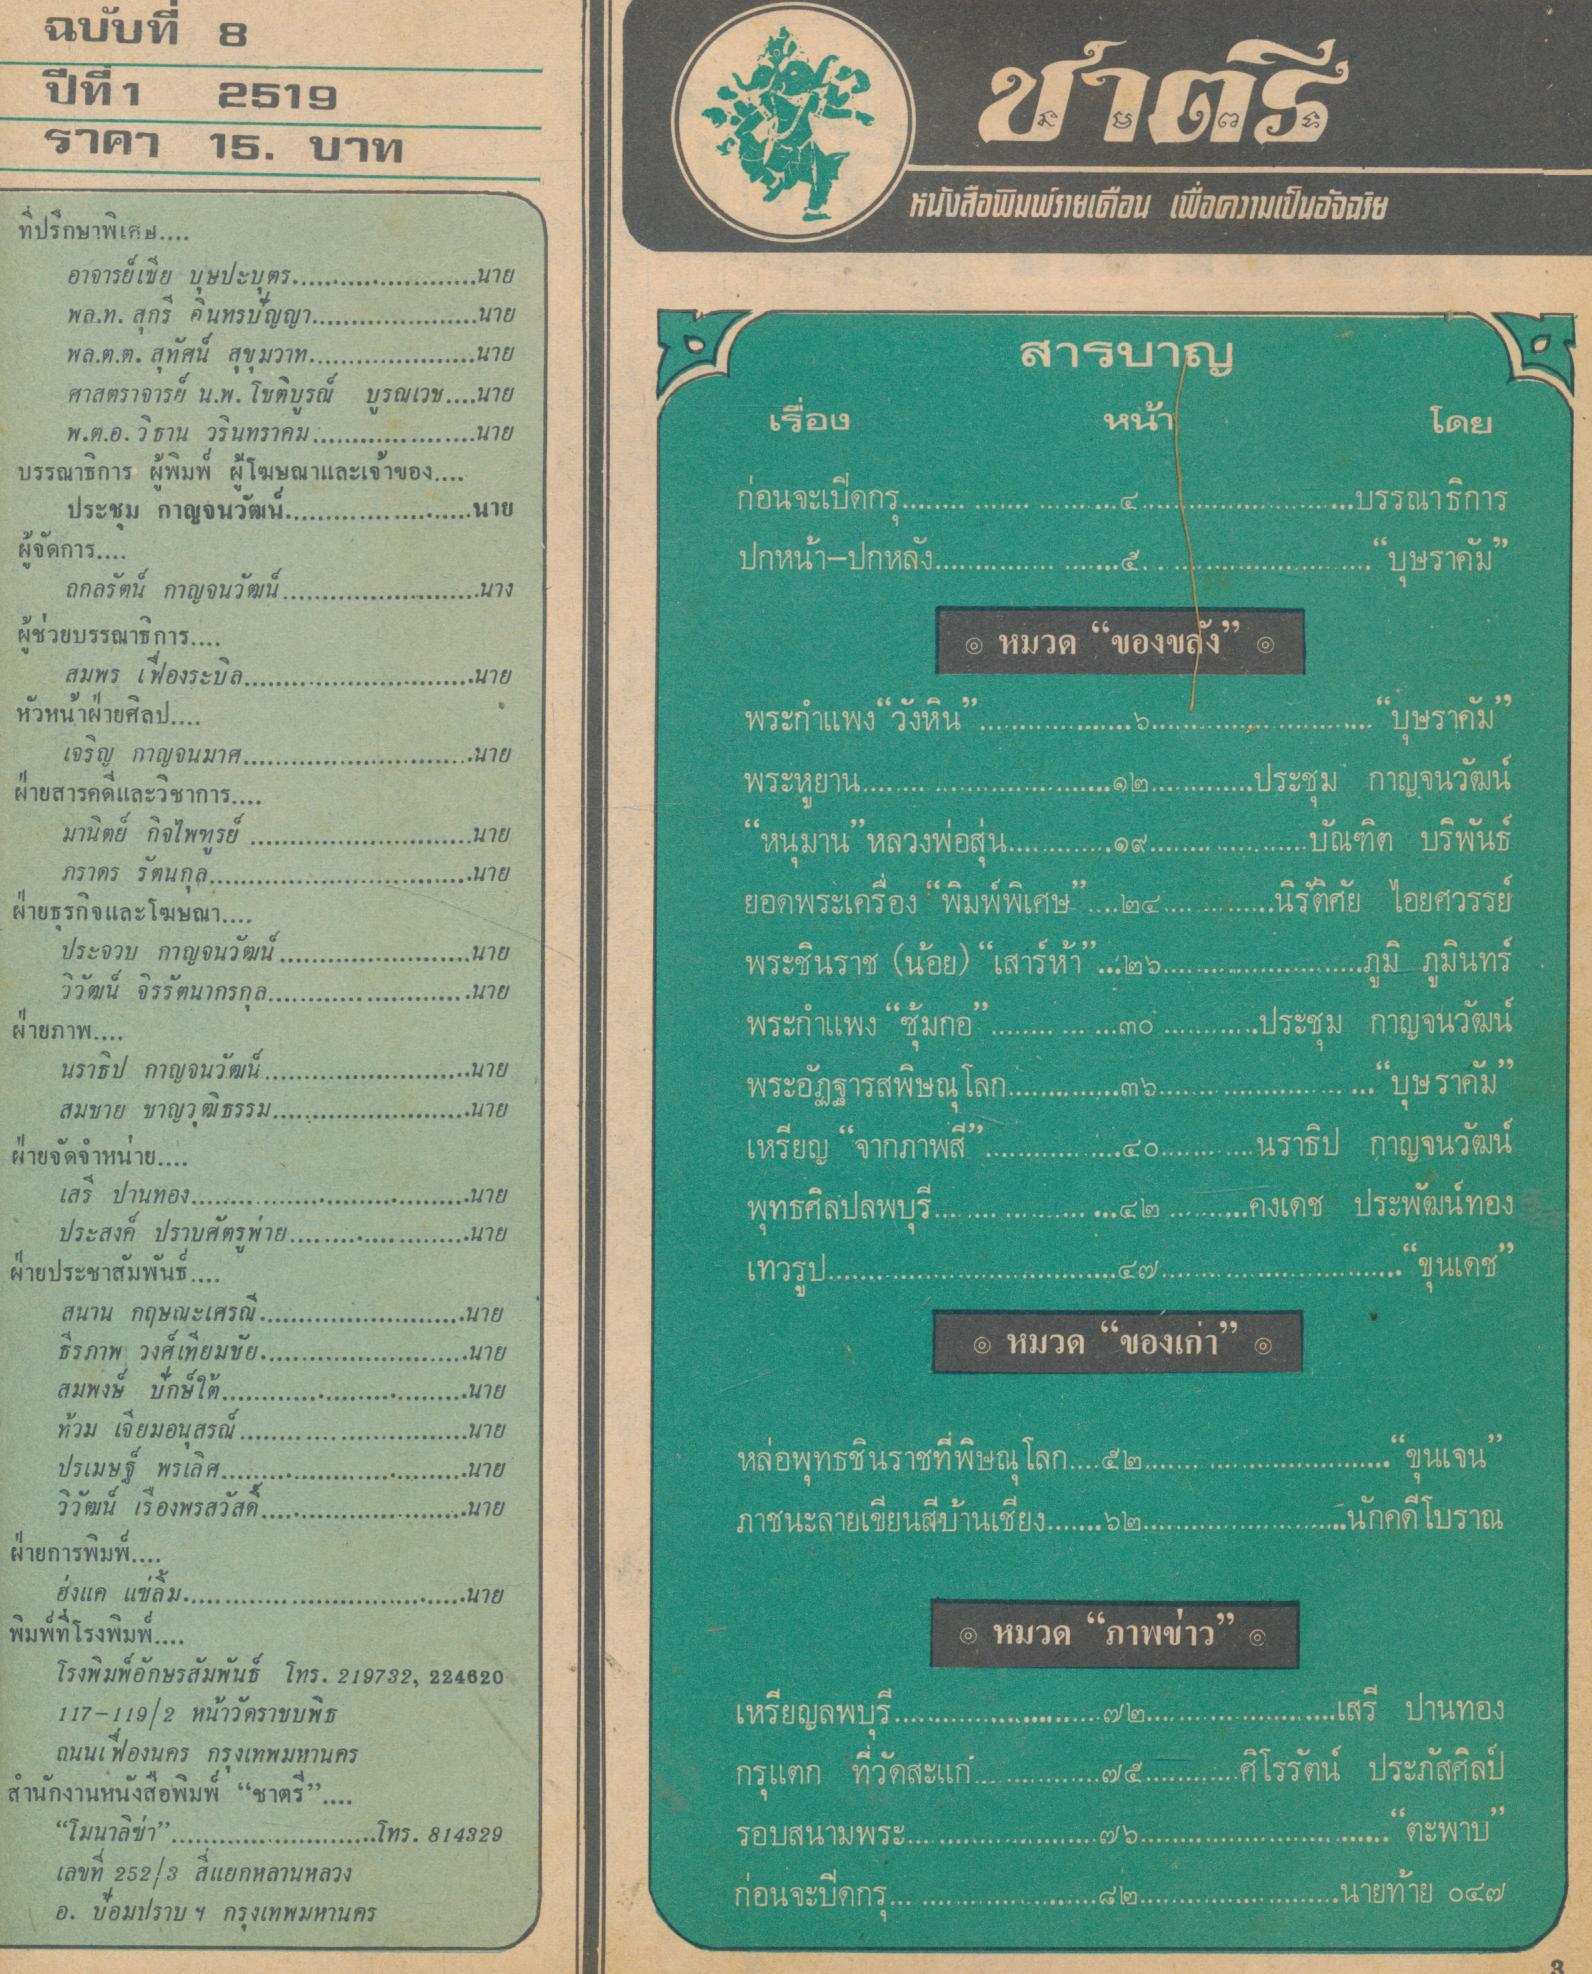 ฉบับที่ 8
ปีที่ 1 2519
ราคา 15. บาท
ที่ปรึกษาพิเศษ....
อาจารย์เชีย บุษปะบุตร........................นาย
พล.ท. สุกรี คินทรปัญญา......................นาย
พล.ต.ต. สุทัศน์ สุขุมวาท......................นาย
ศาสตราจารย์ น.พ. โชติบูรณ์ บูรณเวช....นาย
พ.ต.อ. วิธาน วรินทราคม.....................นาย
บรรณาธิการ ผู้พิมพ์ ผู้โฆษณาและเจ้าของ....
ประชุม กาญจนวัฒน์........................นาย
ผู้จัดการ....
ถกลรัตน์ กาญจนวัฒน์.........................นาง
ผู้ช่วยบรรณาธิการ....
สมพร เฟื่องระบิล.............................นาย
หัวหน้าฝ่ายศิลป....
เจริญ กาญจนมาศ.............................นาย
ฝ่ายสารคดีและวิชาการ....
มานิตย์ กิจไพฑูรย์ ............................นาย
ภราดร รัตนกุล.................................นาย
ฝ่ายธุรกิจและโฆษณา....
ประจวบ กาญจนวัฒน์........................นาย
วิวัฒน์ จิรรัตนากรกุล.........................นาย
ฝ่ายภาพ....
นราธิป กาญจนวัฒน์..........................นาย
สมชาย ชาญวุฒิธรรม.........................นาย
ฝ่ายจัดจำหน่าย....
เสรี ปานทอง...................................นาย
ประสงค์ ปราบศัตรูพ่าย.......................นาย
ฝ่ายประชาสัมพันธ์....
สนาน กฤษณะเศรณี..........................นาย
ธีรภาพ วงศ์เทียมชัย..........................นาย
สมพงษ์ ปักษ์ใต้...............................นาย
ท้วม เจียมอนุสรณ์.............................นาย
ปรเมษฐ์ พรเลิศ................................นาย
วิวัฒน์ เรืองพรสวัสดิ์..........................นาย
ฝ่ายการพิมพ์....
ฮ่งแค แซ่ลิ้ม....................................นาย
พิมพ์ที่โรงพิมพ์....
โรงพิมพ์อักษรสัมพันธ์ โทร. 219732, 224620
117-119/2 หน้าวัดราชบพิธ
ถนนเฟื่องนคร กรุงเทพมหานคร
สำนักงานหนังสือพิมพ์ “ชาตรี”....
“โมนาลิซ่า”..........................โทร. 814329
เลขที่ 252/3 สี่แยกหลานหลวง
อ. ป้อมปราบ ฯ กรุงเทพมหานคร
ชาตรี
หนังสือพิมพ์รายเดือน เพื่อความเป็นอัจฉริย
สารบาญ
เรื่อง หน้า โดย
ก่อนจะเปิดกรุ........................๔...........................บรรณาธิการ
ปกหน้า-ปกหลัง.......................๕............................“บุษราคัม”
๏ หมวด “ของขลัง” ๏
พระกำแพง“วังหิน”...................๖............................“บุษราคัม”
พระหูยาน..............................๑๒.............ประชุม กาญจนวัฒน์
“หนุมาน”หลวงพ่อสุ่น.............๑๙....................บัณฑิต บริพันธ์
ยอดพระเครื่อง “พิมพ์พิเศษ”....๒๔..............นิรัติศัย ไอยศวรรย์
พระชินราช (น้อย) “เสาร์ห้า”...๒๖........................ภูมิ ภูมินทร์
พระกำแพง “ซุ้มกอ”................๓๐............ประชุม กาญจนวัฒน์
พระอัฏฐารสพิษณุโลก.............๓๖.........................“บุษราคัม”
เหรียญ “จากภาพสี”.................๔๐.............นราธิป กาญจนวัฒน์
พุทธศิลปลพบุรี.......................๔๒............คงเดช ประพัฒน์ทอง
เทวรูป...................................๔๗............................“ขุนเดช”
๏ หมวด “ของเก่า” ๏
หล่อพุทธชินราชที่พิษณุโลก....๕๒............................“ขุนเจน”
ภาชนะลายเขียนสีบ้านเชียง.......๖๒.......................นักคดีโบราณ
๏ หมวด “ภาพข่าว” ๏
เหรียญลพบุรี..........................๗๒........................เสรี ปานทอง
กรุแตก ที่วัดสะแก................๗๕............ศิโรรัตน์ ประภัสศิลป์
รอบสนามพระ.........................๗๖............................“ตะพาบ”
ก่อนจะปิดกรุ..........................๘๒........................นายท้าย ๐๔๗
3